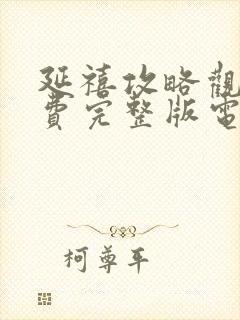 延禧攻略觀
費完整版電
柯尊平